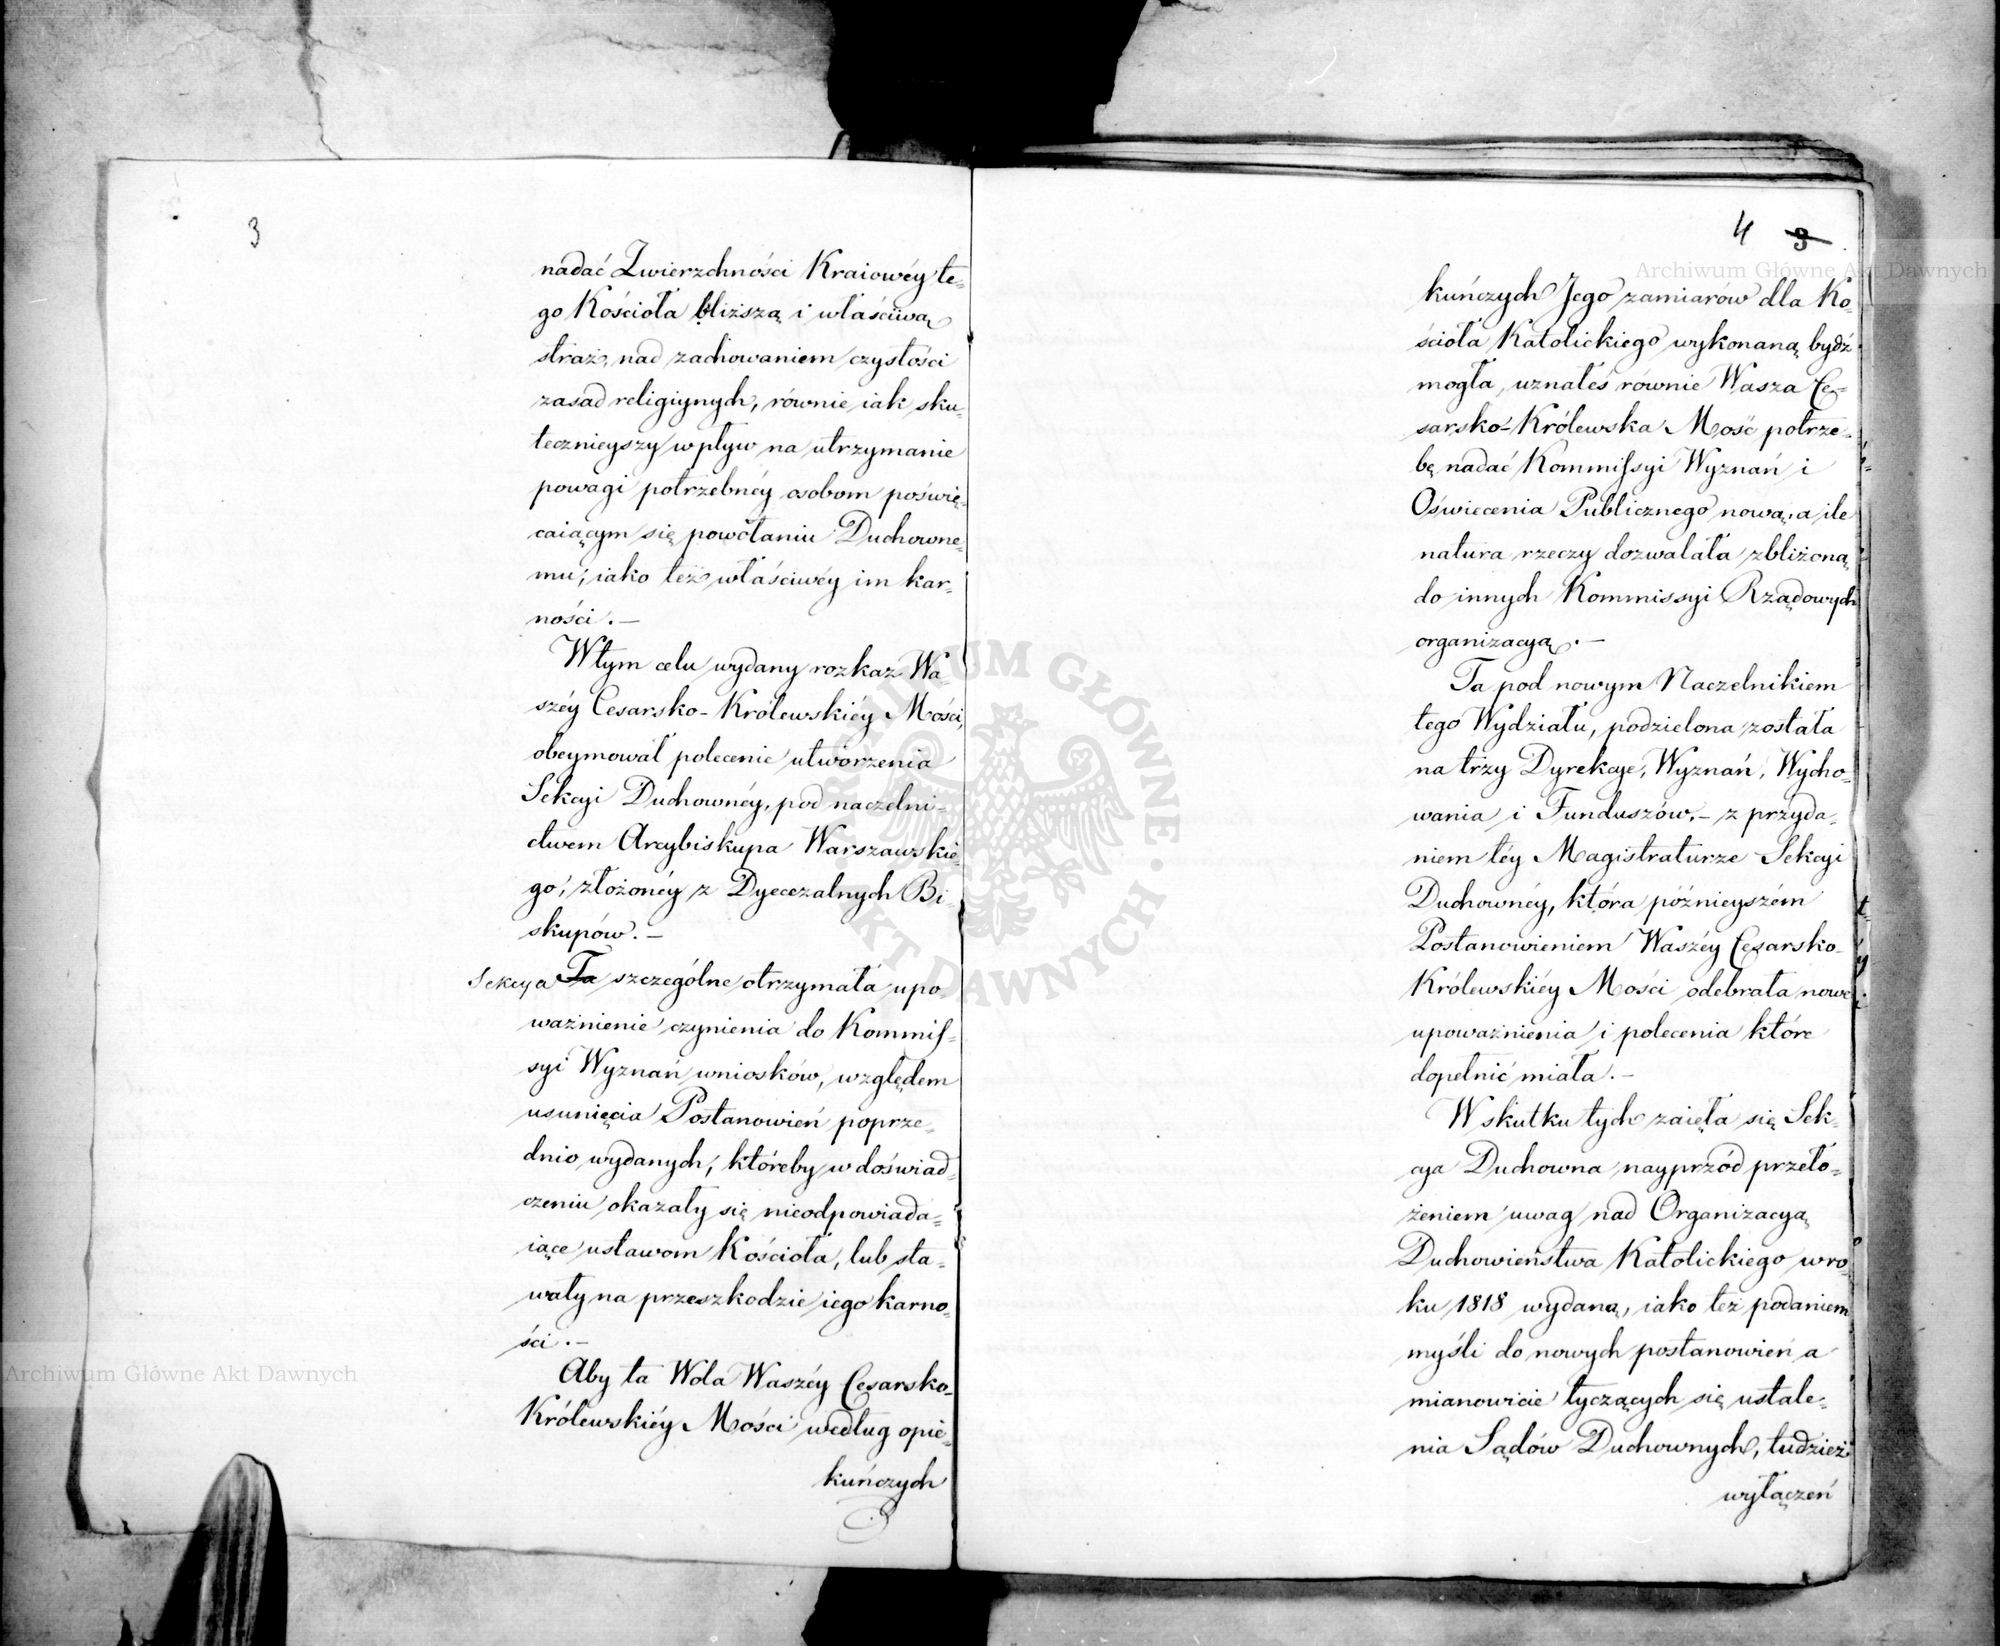 3
nadać Zwierzchności Kraiowéy te=
go Kościoła bliższą i właściwą
straż, nad zachowaniem czystości
zasad religiynych, równie iak sku=
tecznieyszy wpływ na utrzymanie
powagi potrzebnéy osobom poświę=
caiącym się powołaniu Duchowne=
mu; iako też właściwéy im kar=
ności. —
W tym celu wydany rozkaz Wa=
széy Cesarsko-Królewskiéy Mości,
obeymował polecenie utworzenia
Sekcyi Duchownéy, pod naczelni=
ctwem Arcybiskupa Warszawskie=
go, złożonéy z Dyecezalnych Bi=
skupów. —
Sekcya Ta szczególne otrzymała upo=
ważnienie czynienia do Kommis=
syi Wyznań wniosków, względem
usunięcia Postanowień poprze=
dnio wydanych, któreby w doświad=
czeniu okazały się nieodpowiada=
iące ustawom Kościoła, lub sta=
wały na przeszkodzie iego karno=
ści. —
Aby ta Wola Waszéy Cesarsko-
Królewskiéy Mości według opie=
kuńczych
4 3
kuńczych Jego zamiarów dla Ko=
ścioła Katolickiego wykonaną bydź
mogła, uznałeś równie Wasza Ce=
sarsko-Królewska Mość potrze=
bę nadać Kommissyi Wyznań i
Oświecenia Publicznego nową, a ile
natura rzeczy dozwalała zbliżoną
do innych Kommissyi Rządowych
organizacyą. —
Ta pod nowym Naczelnikiem
tego Wydziału, podzielona została
na trzy Dyrekcye, Wyznań, Wycho=
wania i Funduszów, – z przyda=
niem téy Magistraturze Sekcyi
Duchownéy, która późnieyszém
Postanowieniem Waszéy Cesarsko-
Królewskiéy Mości odebrała nowe
upoważnienia i polecenia które
dopełnić miała. —
W skutku tych zaięła się Sek=
cya Duchowna nayprzód przeło=
żeniem uwag nad Organizacyą
Duchowieństwa Katolickiego w ro=
ku 1818 wydaną, iako też podaniem
myśli do nowych postanowień a
mianowicie tyczących się ustale=
nia Sądów Duchownych, tudzież
wyłączeń
Archiwum Główne Akt Dawnych
Archiwum Główne Akt Dawnych
ARCHIWUM GŁÓWNE AKT DAWNYCH